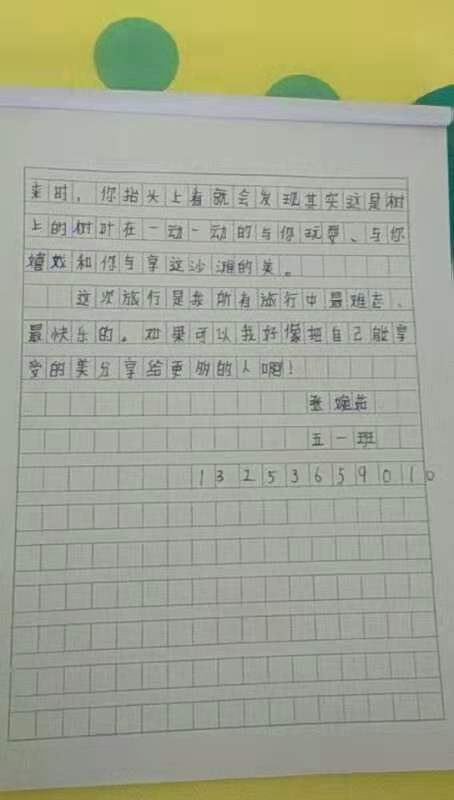 来时，你抬头上看就会发现其实这是树
上的树叶在一动一动的与你玩耍、与你
嬉戏和你与享这沙滩的美。
这次旅行是我所有旅行中最难忘、
最快乐的。如果可以我好像把自己能享
受的美分享给更多的人啊！
婉茹
五一班
13253659010